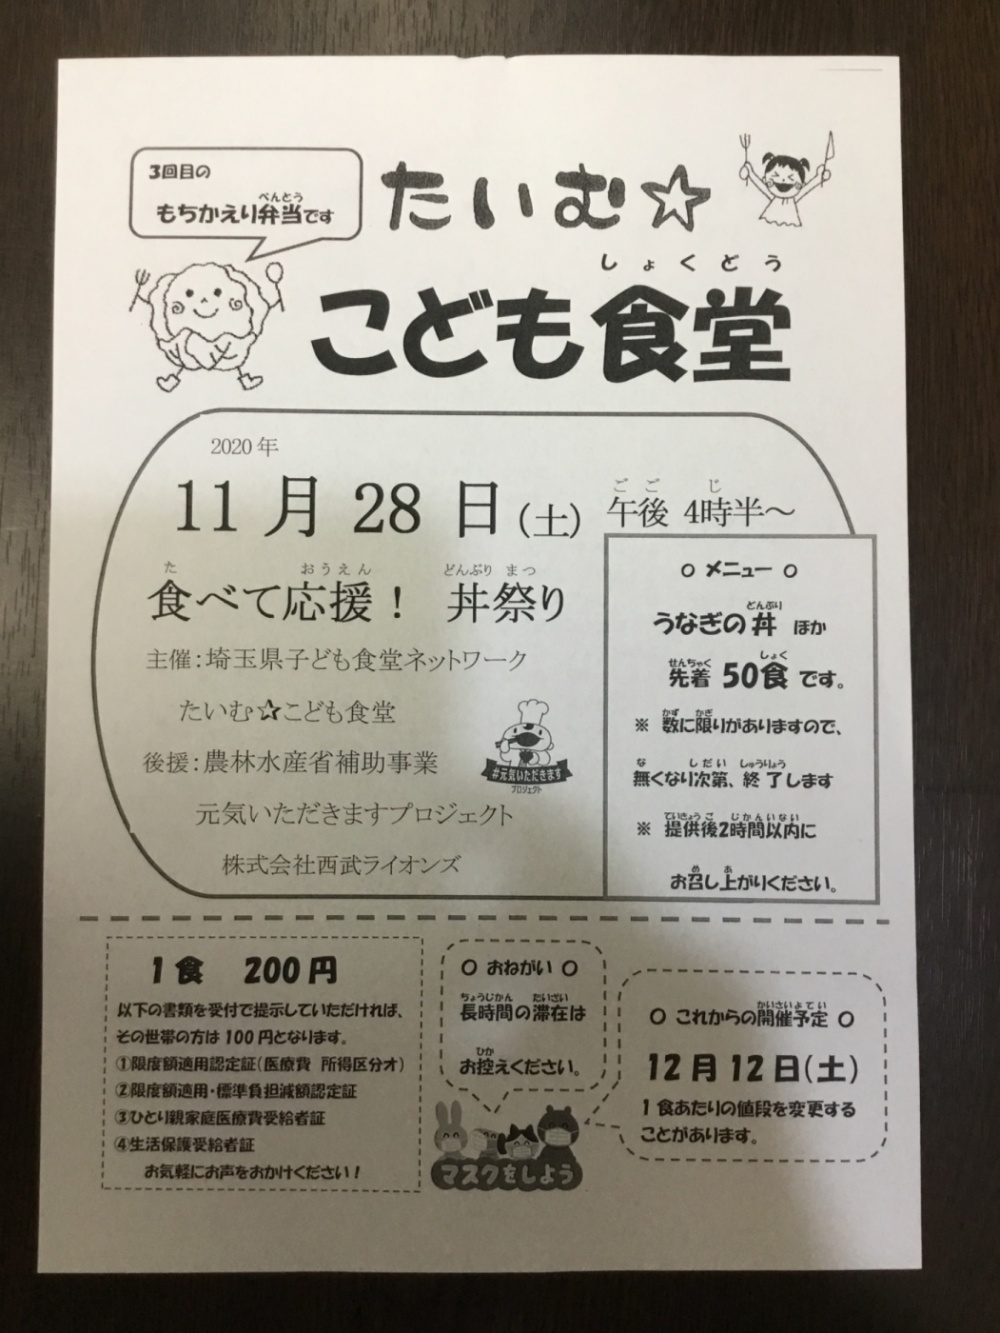 3回目の
もちかえり弁当です
べんとう
たいむ☆
しょくどう
こども食堂
2020年
11月28日(土)
ごご じ
午後 4時半～
た おうえん どんぶり まつ
食べて応援！ 丼祭り
主催：埼玉県子ども食堂ネットワーク
たいむ☆こども食堂
後援：農林水産省補助事業
元気いただきますプロジェクト
株式会社西武ライオンズ
#元気いただきます
プロジェクト
○ メニュー ○
どんぶり
うなぎの丼 ほか
せんちゃく しょく
先着 50食 です。
かず かぎ
※ 数に限りがありますので、
な しだい しゅうりょう
無くなり次第、終了します
ていきょうご じかんいない
※ 提供後2時間以内に
め あ
お召し上がりください。
1食 200円
以下の書類を受付で提示していただければ、
その世帯の方は100円となります。
①限度額適用認定証（医療費 所得区分オ）
②限度額適用・標準負担減額認定証
③ひとり親家庭医療費受給者証
④生活保護受給者証
お気軽にお声をおかけください！
○ おねがい ○
ちょうじかん たいざい
長時間の滞在は
ひか
お控えください。
マスクをしよう
かいさいよてい
○ これからの開催予定 ○
12月12日(土)
1食あたりの値段を変更する
ことがあります。